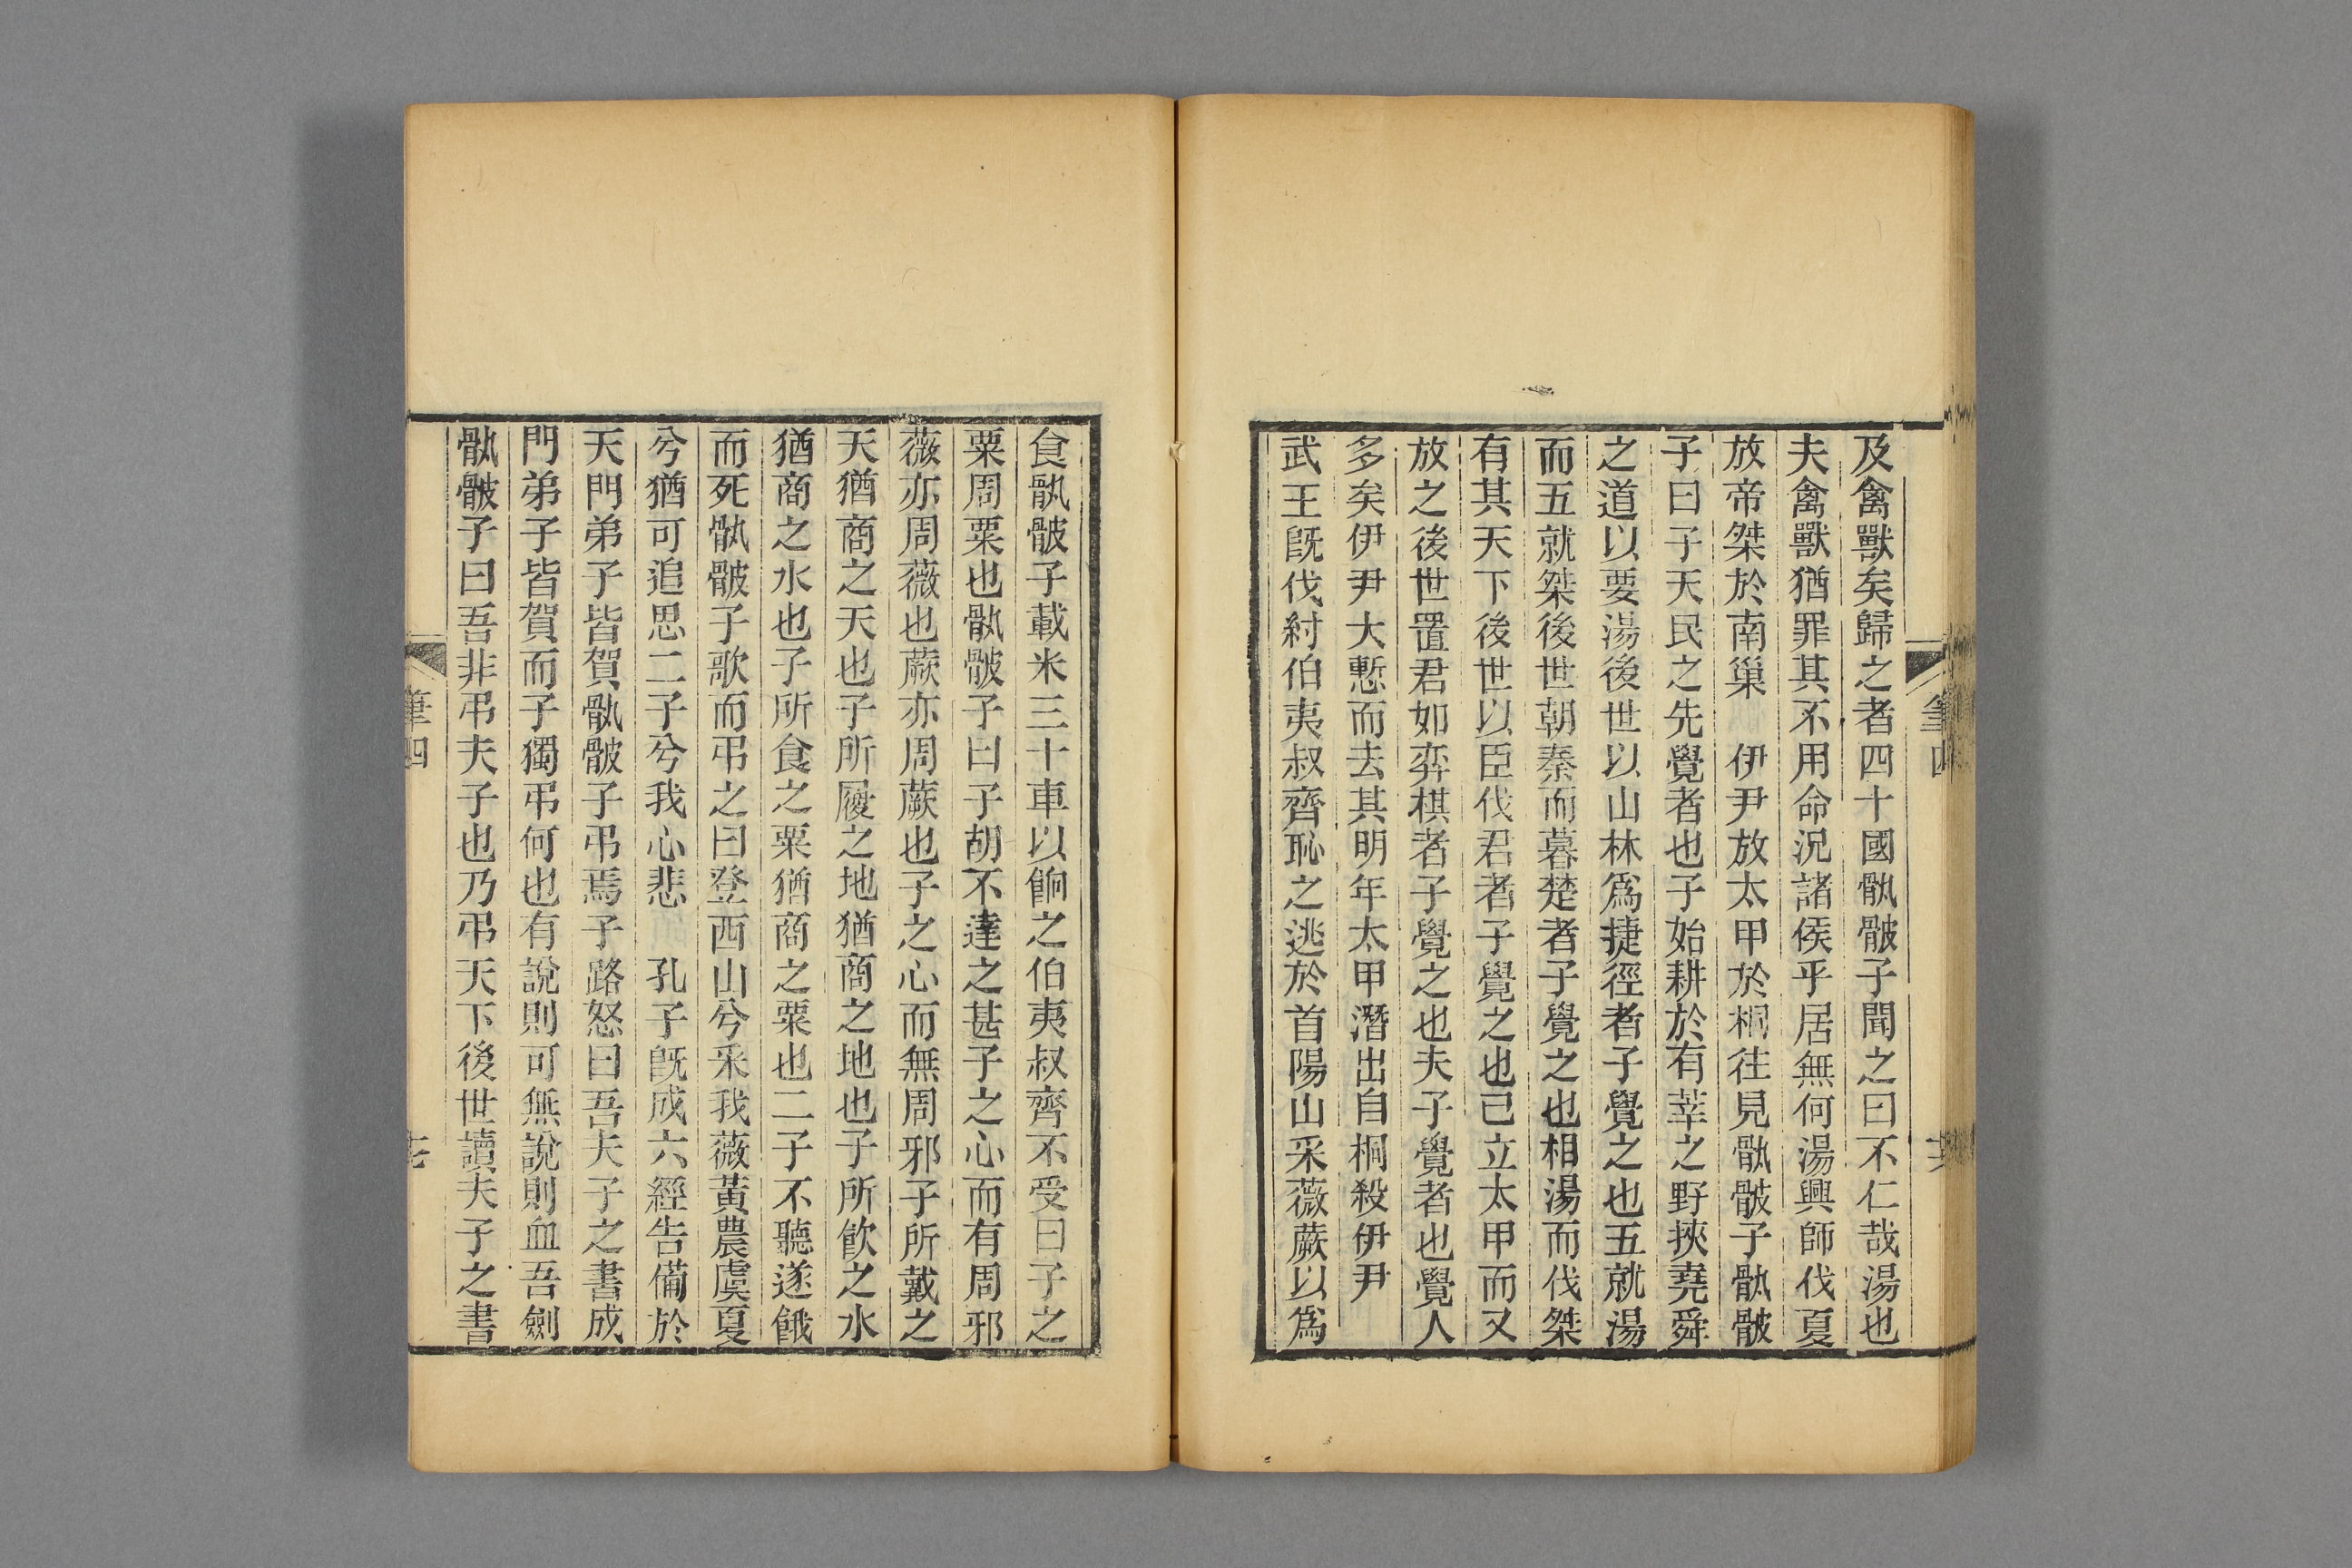 及禽獸矣歸之者四十國骩骳子聞之曰不仁哉湯也
夫禽獸猶罪其不用命況諸侯乎居無何湯興師伐夏
放帝桀於南巢　伊尹放太甲於桐往見骩骳子骩骳
子曰子天民之先覺者也子始耕於有莘之野挾堯舜
之道以要湯後世以山林爲捷徑者子覺之也五就湯
而五就桀後世朝秦而暮楚者子覺之也相湯而伐桀
有其天下後世以臣伐君者子覺之也已立太甲而又
放之後世置君如弈棋者子覺之也夫子覺者也覺人
多矣伊尹大慙而去其明年太甲潛出自桐殺伊尹
武王旣伐紂伯夷叔齊恥之逃於首陽山采薇蕨以爲
食骩骳子載米三十車以餉之伯夷叔齊不受曰子之
粟周粟也骩骳子曰子胡不達之甚子之心而有周邪
薇亦周薇也蕨亦周蕨也子之心而無周邪子所戴之
天猶商之天也子所履之地猶商之地也子所飲之水
猶商之水也子所食之粟猶商之粟也二子不聽遂餓
而死骩骳子歌而弔之曰登西山兮采我薇黃農虞夏
兮猶可追思二子兮我心悲　孔子旣成六經告備於
天門弟子皆賀骩骳子弔焉子路怒曰吾夫子之書成
門弟子皆賀而子獨弔何也有說則可無說則血吾劍
骩骳子曰吾非弔夫子也乃弔天下後世讀夫子之書
筆四